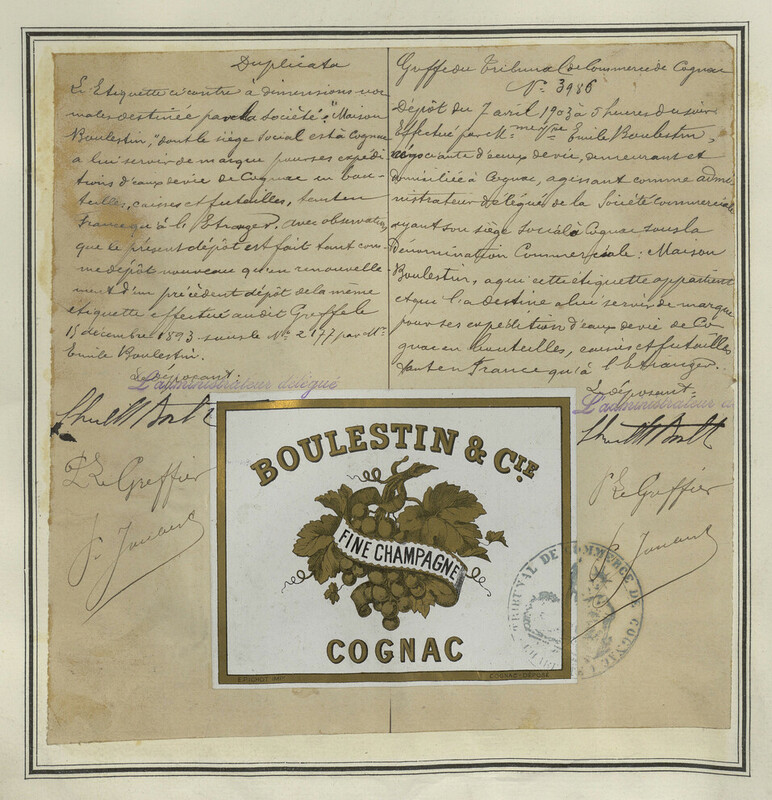 Duplicata
L'Etiquette ci contre à dimensions nor
males destinée par la Société: "Maison
Boulestin," dont le siège Social est à Cognac
a lui servir de marque pour ses expédi
tions d'eaux de vie de Cognac en bou-
teilles, caisses et futailles, tant en
France qu'à l'Etranger. avec observation
que le présent dépôt est fait tant com
me dépôt nouveau qu'en renouvelle
ment d'un précédent dépôt de la même
étiquette effectué audit Greffe le
15 décembre 1893 sous le No 2177 par Mr
Emile Boulestin.
Le déposant.
L'administrateur délégué
Pr Le Greffier
Greffe du Tribunal de Commerce de Cognac
No 3986
Dépôt du 7 avril 1903 à 5 heures du soir
Effectué par Mme Vve Emile Boulestin,
négociante d'eaux de vie, demeurant et
domiciliée à Cognac, agissant comme admi
nistrateur délégué de la Société commerciale
ayant son siège social à Cognac sous la
Dénomination Commerciale: Maison
Boulestin, a qui cette étiquette appartient
et qui l'a destine a lui servir de marque
pour ses expédition d'eaux de vie de Co
gnac en bouteilles, caisses et futailles
tant en France qu'à l'Etranger.
Le déposant
L'administrateur d
Pr Le Greffier
BOULESTIN & CIE.
FINE CHAMPAGNE
COGNAC
COGNAC-DÉPOSÉ
TRIBUNAL DE COMMERCE DE COGNAC